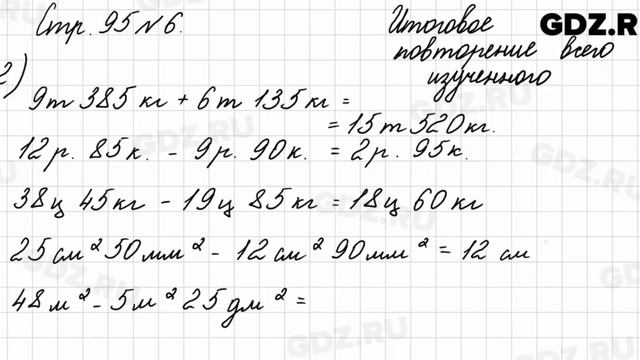 Стр. 95 № 6.
Итоговое
повторение всего
изученного
GDZ.R
2)
9т 385 кг + 6т 135кг =
= 15т 520кг.
12р. 85к. - 9р. 90к. = 2р. 95к.
38ц 45кг - 19ц 85кг = 18ц 60кг
25см² 50мм² - 12см² 90мм² = 12 см
48м² - 5м² 25дм² =
GDZ.RU
GDZ.RU
GDZ.RU
GDZ.RU
GDZ.RU